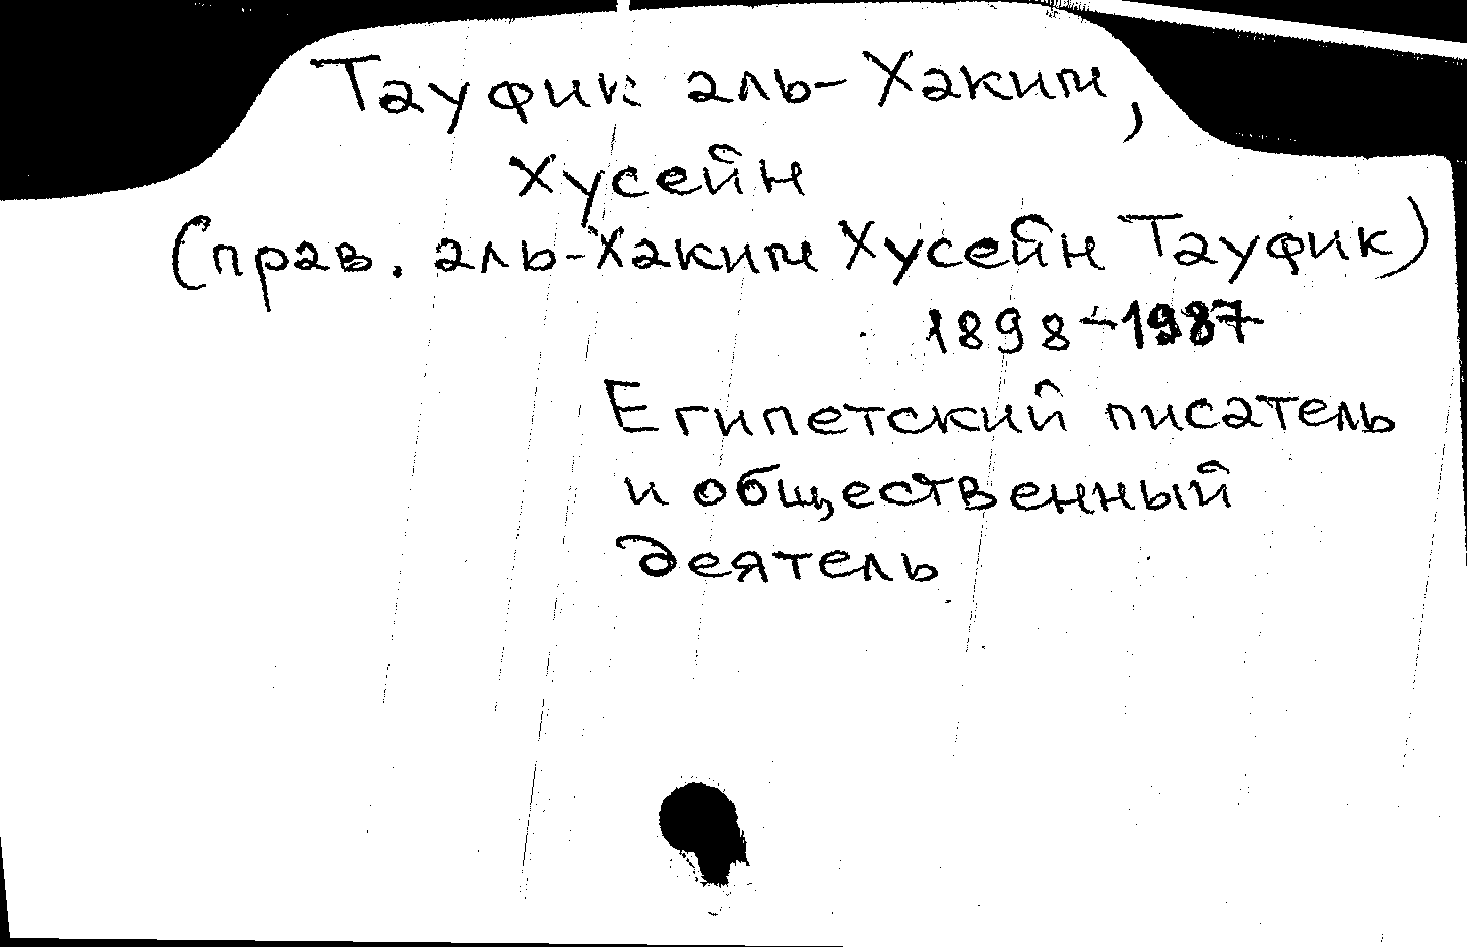 Тауфик аль-Хаким,
Хусейн
(прав. аль-Хаким Хусейн Тауфик)
1898-1987
Египетский писатель
и общественный
деятель